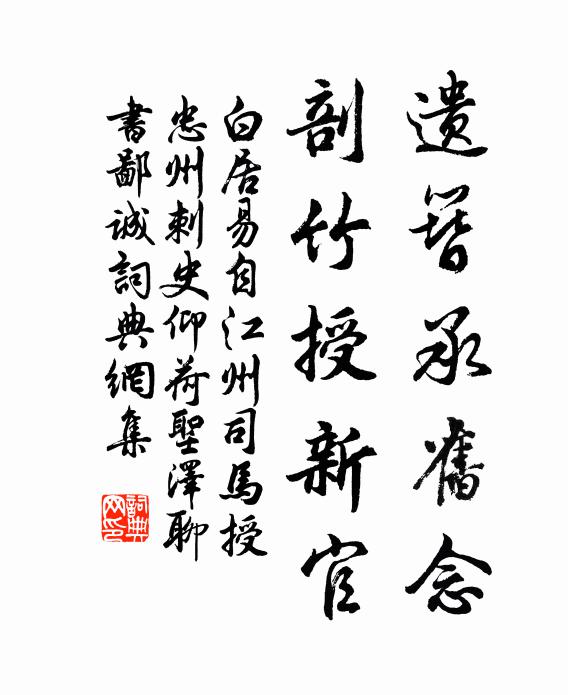 遺簪承舊念
剖竹授新官
白居易自江州司馬授
忠州刺史仰荷聖澤聊
書鄙誠詞典網集
詞典
网印